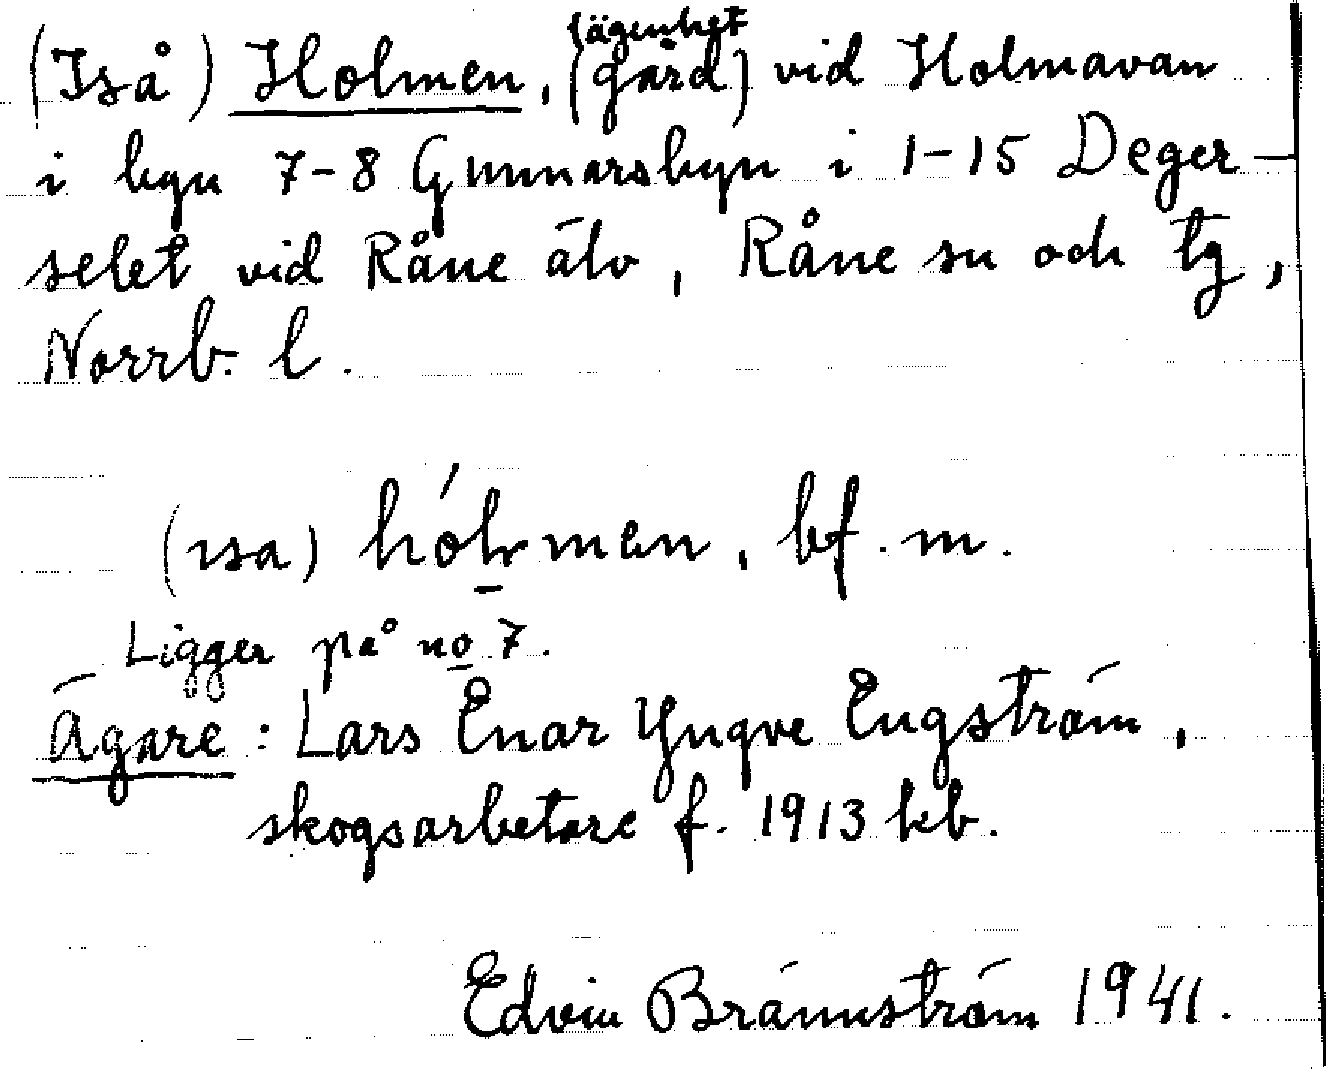 lägenhet
(Iså) Holmen, (gård) vid Holmavan
i byn 7-8 Gunnarsbyn i 1-15 Deger-
selet vid Råne älv, Råne sn och tg,
Norrb. l.
(ısa) hólmen, bf. m.
Ligger på no 7.
Ägare: Lars Enar Yngve Engström,
skogsarbetare f. 1913 kb.
Edvin Brännström 1941.